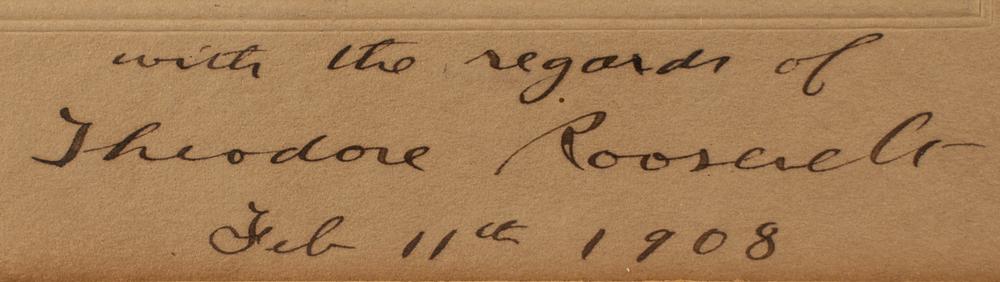 with the regards of
Theodore Roosevelt
Feb 11th 1908